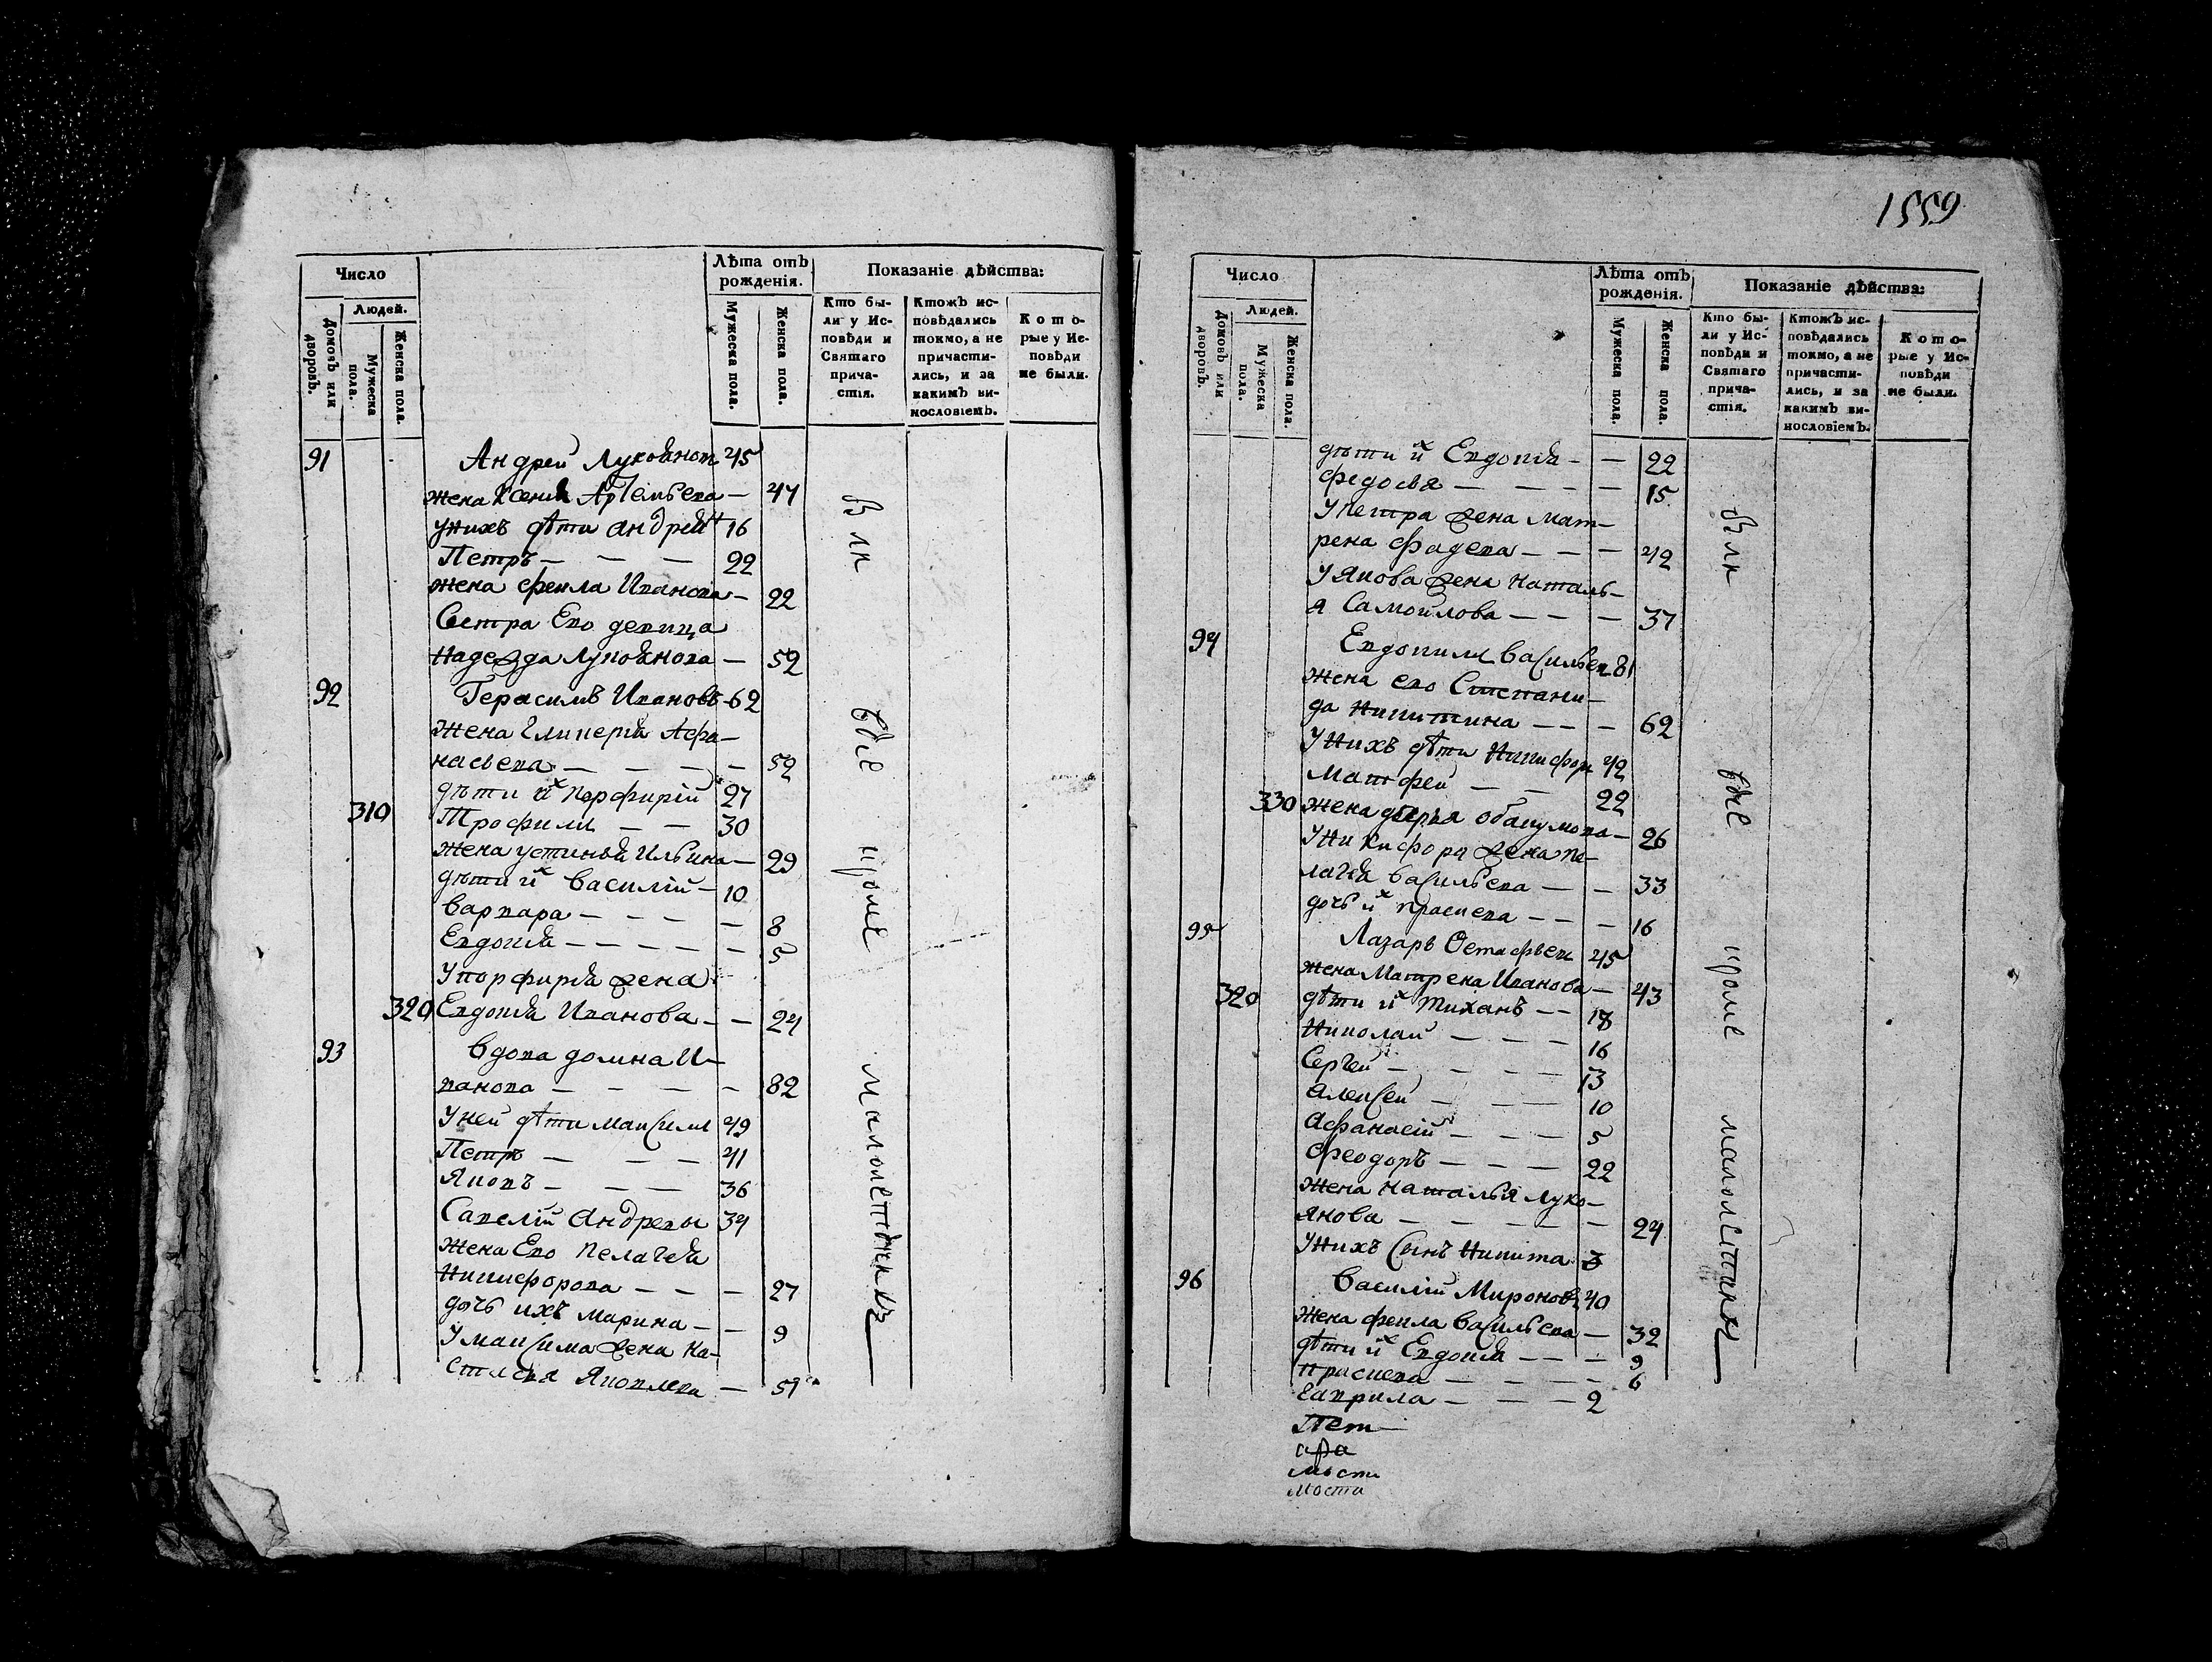 Число
Людей.
Домовъ или дворовъ.
Мужеска пола.
Женска пола.
Лѣта отъ рожденія.
Мужеска пола.
Женска пола.
Показаніе дѣйства:
Кто бы-
ли у Ис-
повѣди и
Святаго
прича-
стія.
Ктожъ ис-
повѣдались
токмо, а не
причасти-
лись, и за
какимъ ви-
нословіемъ.
Кото-
рые у Ис-
повѣди
не были.
91 Андрей Лукоянов 45
жена Ксения Артемьева — 47
у нихъ дѣти Андрей 16
Петръ — — — 22
жена Фекла Иванова — 22
Сестра Ево девица
Надежда Лукоянова — 52
92 Герасимъ Ивановъ 62
жена Гликерия Афа-
насьева — — — — 52
дѣти их Порфирій 27
310 Трофим — — 30
жена устинья Ильина — 29
дѣти их Василій — 10
Варвара — — — — 8
Евдокия — — — — — 5
у порфирия жена
320 Евдокия Иванова — — 24
93 Вдова домна И-
ванова — — — — 82
у ней дѣти Максим 49
Петръ — — — 41
Яковъ — — — 36
Савелій Андреевы 34
жена Ево Пелагея
Никифорова — — — 27
дочь ихъ Марина — — 9
у максима жена На-
стасья Яковлева — 51
Были
все
кроме
малолетныхъ
1559
Число
Людей.
Домовъ или дворовъ.
Мужеска пола.
Женска пола.
Лѣта отъ рожденія.
Мужеска пола.
Женска пола.
Показаніе дѣйства:
Кто бы-
ли у Ис-
повѣди и
Святаго
прича-
стія.
Ктожъ ис-
повѣдались
токмо, а не
причасти-
лись, и за
какимъ ви-
нословіемъ.
Кото-
рые у Ис-
повѣди
не были.
дѣти их Евдокия — — 22
Федосья — — — — 15
у петра жена мат-
рена Фадева — — — 42
у Якова жена Наталь-
я Самойлова — — — 37
94 Евдоким Васильев 81
жена ево Степани-
да Никитина — — — 62
у нихъ дѣти Никифор 42
Матфей — — 22
330 жена дарья — 26
у Никифора жена пе-
лагея Васильева — — 33
дочь их праскева — — — 16
95 Лазарь Остафьев 45
жена Матрена Иванова — 43
320 дѣти их Тиханъ — — 18
Николай — — — 16
Сергей — — — — 13
Алексей — — — 10
Афанасій — — — 5
Феодоръ — — — 22
жена Наталья Луко-
янова — — — — — 24
у нихъ сынъ Никита 3
96 Василій Мироновъ 40
жена фекла Васильева — 32
дѣти их Евдокия — — — 9
праскева — — — — 6
Гаврила — — — 2
Пет
мости